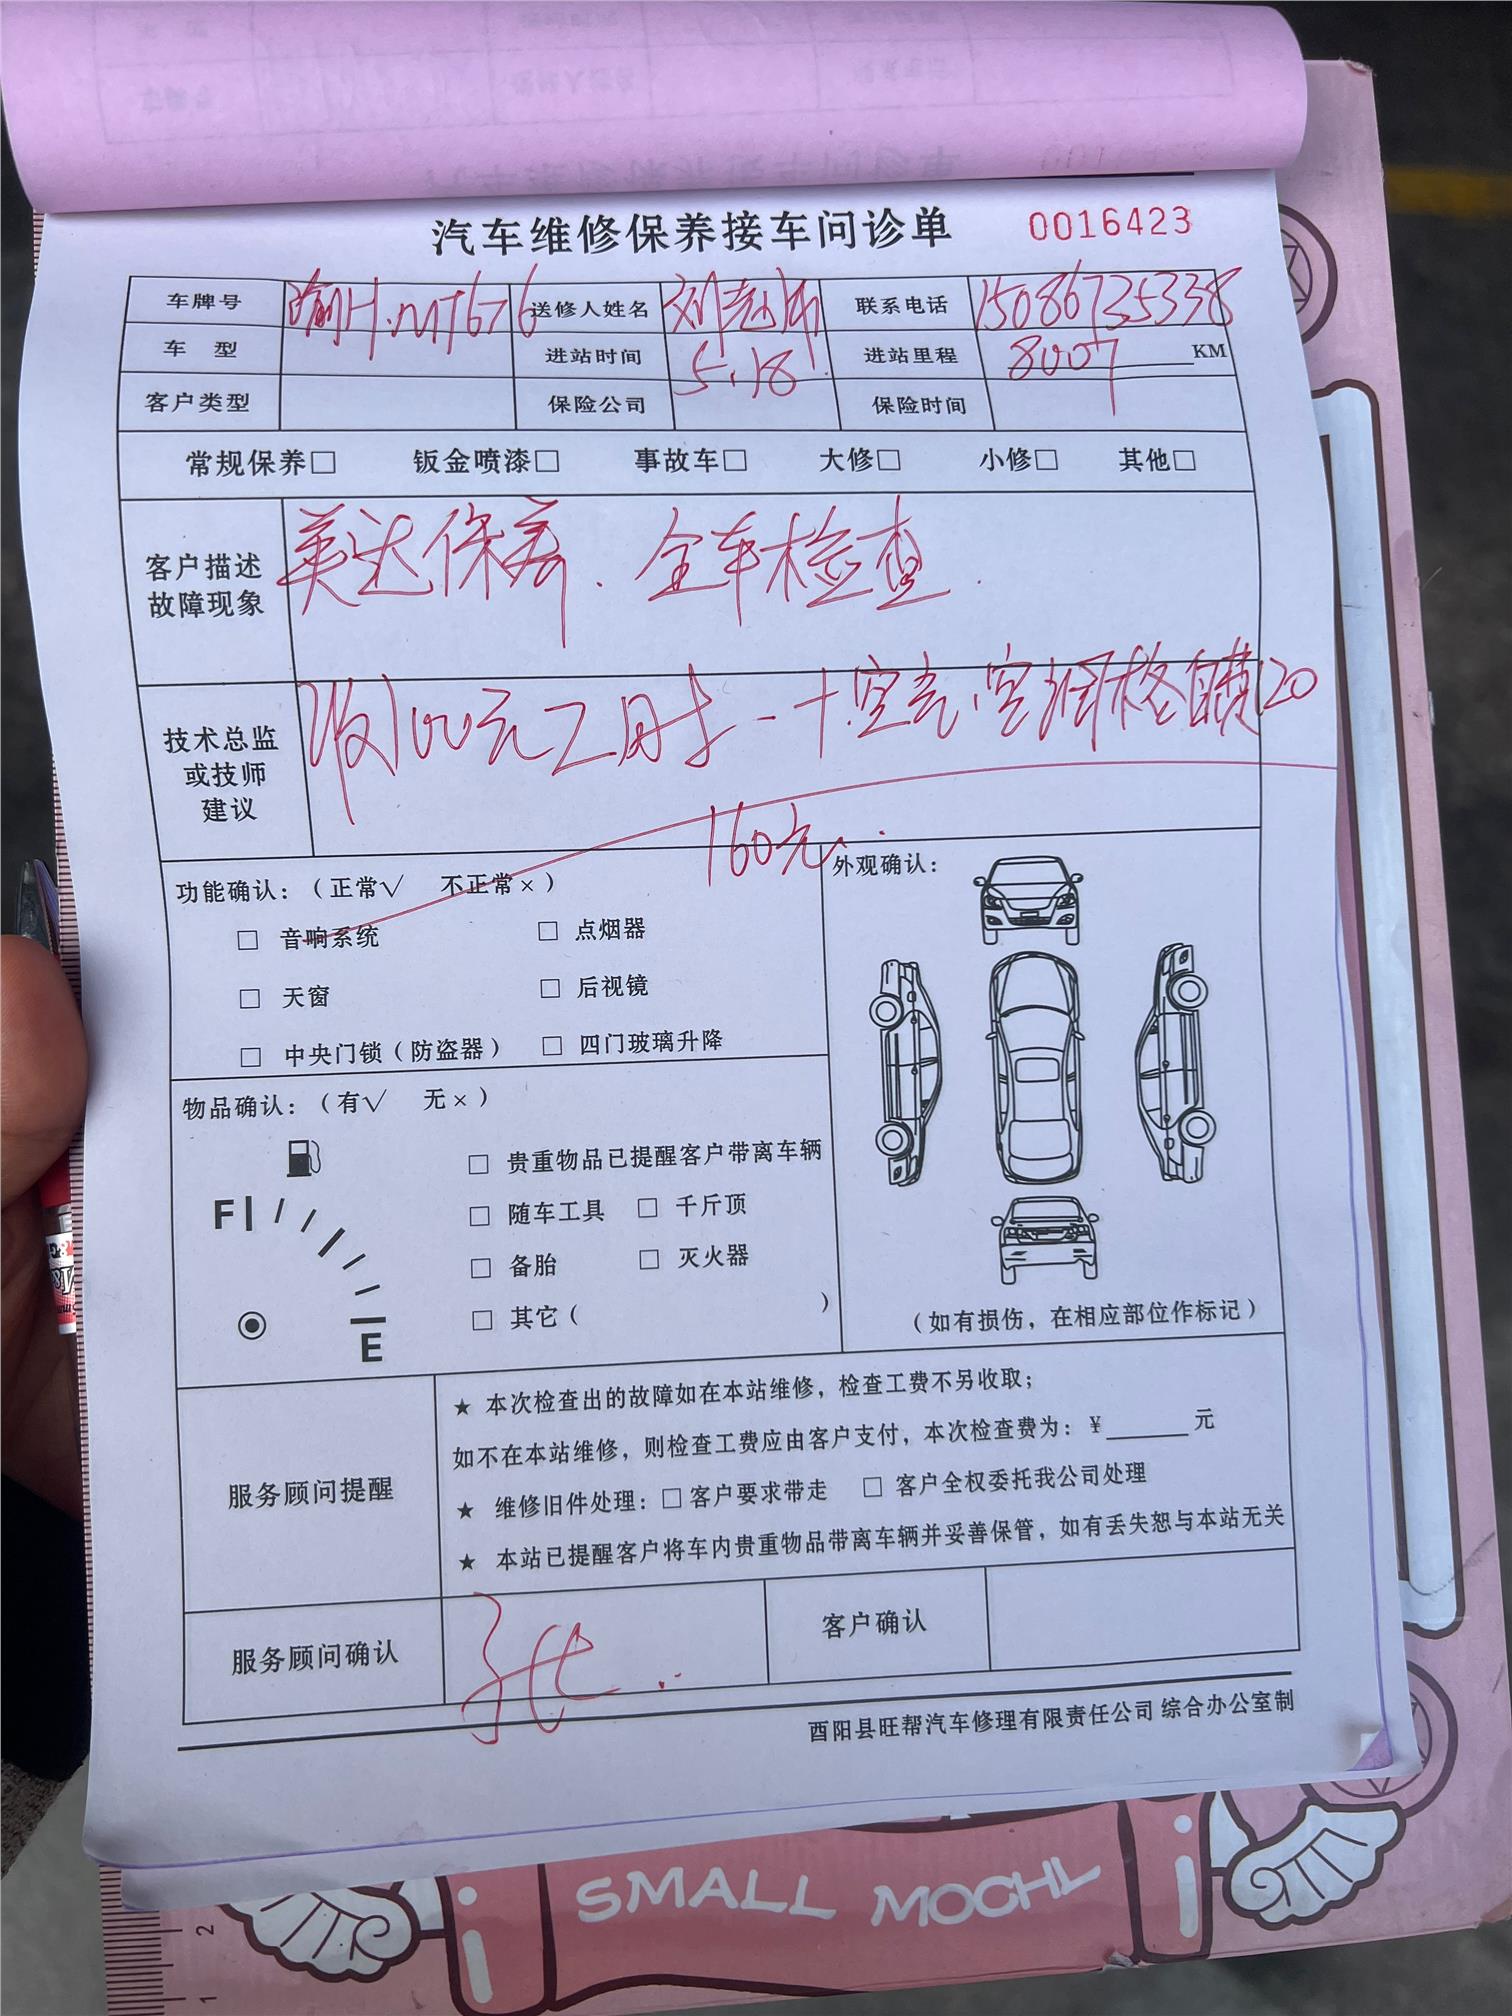 汽车维修保养接车问诊单 0016423
车牌号 渝H.MT676 送修人姓名 刘志 联系电话 15086735338
车 型 进站时间 5.18 进站里程 8007 KM
客户类型 保险公司 保险时间
常规保养□ 钣金喷漆□ 事故车□ 大修□ 小修□ 其他□
客户描述
故障现象
美达保养.全车检查.
技术总监
或技师
建议
收100元工时.一十空气.空调格自费120
160元.
功能确认：（正常√ 不正常×）
□ 音响系统 □ 点烟器
□ 天窗 □ 后视镜
□ 中央门锁（防盗器） □ 四门玻璃升降
外观确认：
（如有损伤，在相应部位作标记）
物品确认：（有√ 无×）
F
E
□ 贵重物品已提醒客户带离车辆
□ 随车工具 □ 千斤顶
□ 备胎 □ 灭火器
□ 其它（ ）
服务顾问提醒
★ 本次检查出的故障如在本站维修，检查工费不另收取；
如不在本站维修，则检查工费应由客户支付，本次检查费为：¥______元
★ 维修旧件处理：□客户要求带走 □ 客户全权委托我公司处理
★ 本站已提醒客户将车内贵重物品带离车辆并妥善保管，如有丢失恕与本站无关
服务顾问确认 客户确认
酉阳县旺帮汽车修理有限责任公司 综合办公室制
SMALL MOCHL
2
1